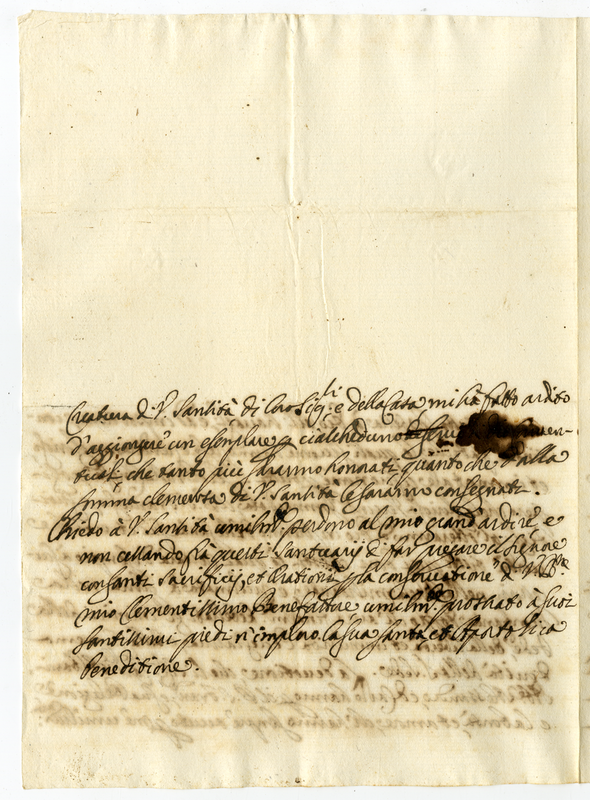 Creatura di V. Santità di loro Sig.ri e della Casa mi hà fatto ardito
d'aggiongere un esemplare p ciascheduno
che tanto più saranno honorati quanto che dalla
somma clemenza di V. Santità le saranno consegnati.
Chiedo à V. Santità humiliss.o perdono al mio grand'ardire, e
non cessando frà questi Santuarij di far pregare il Signore
con santi Sacrificij, et Orationi p la conservatione di
mio Clementissimo Benefattore humiliss.te prostrato à suoi
santissimi piedi n'imploro la sua santa, et Apostolica
beneditione.